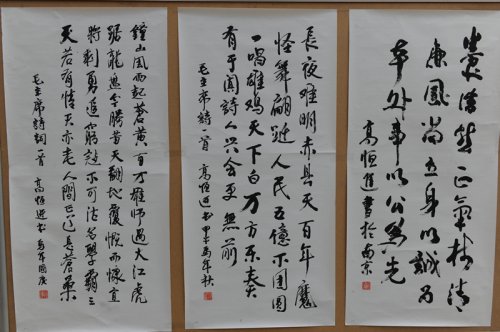 正氣樹清
廉風尚立身以誠為
本处事以公為先
高恒進書於南京
長夜難明赤县天百年魔
怪舞翩躚人民五億不团圆
一唱雄鸡天下白万方乐奏
有于阗诗人兴会更無前
毛主席詩一首 高恒進书 甲午马年秋
鐘山風雨起蒼黄百万雄师過大江虎
踞龍盤今勝昔天翻地覆慨而慷宜
將剩勇追窮寇不可沽名學霸王
天若有情天亦老人间正道是滄桑
毛主席詩詞一首 高恒進书 马年國庆